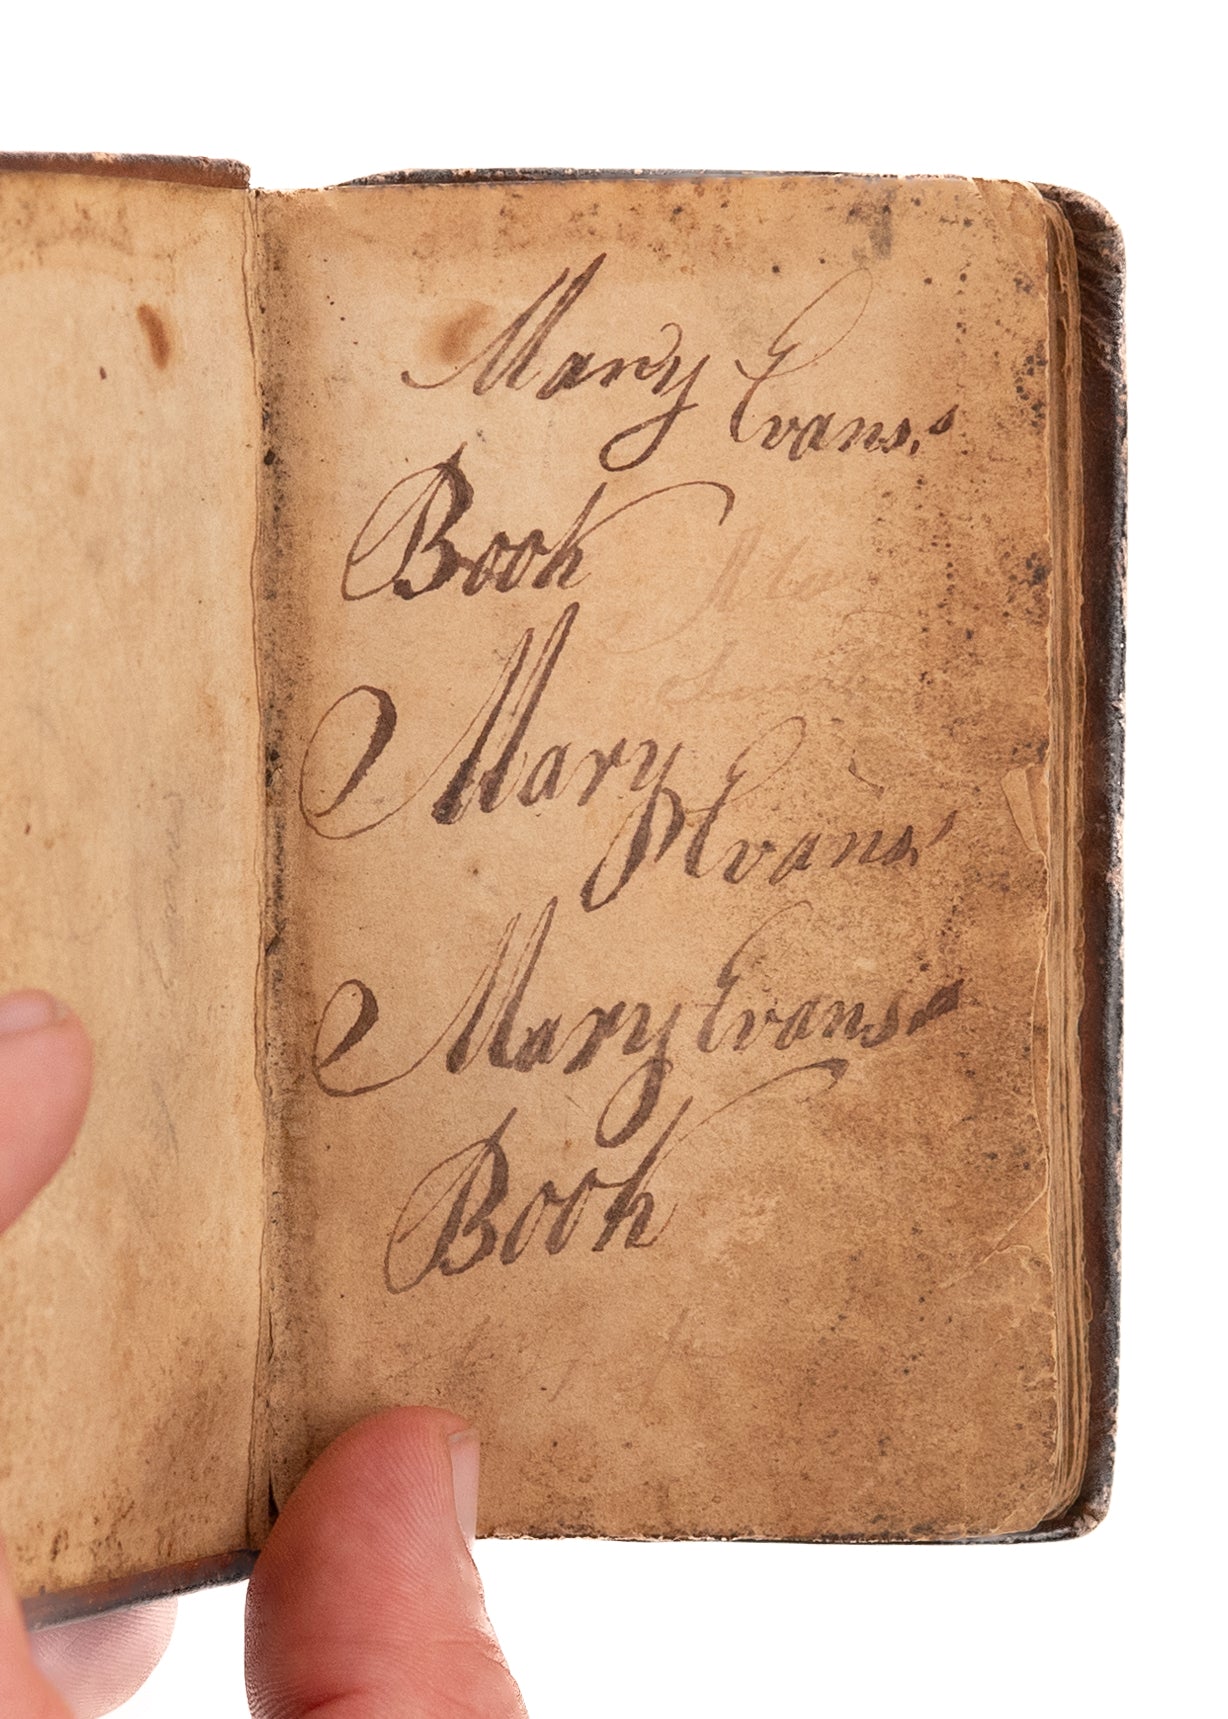 Mary Evans's
Book
Mary Evans'
Mary Evans
Book